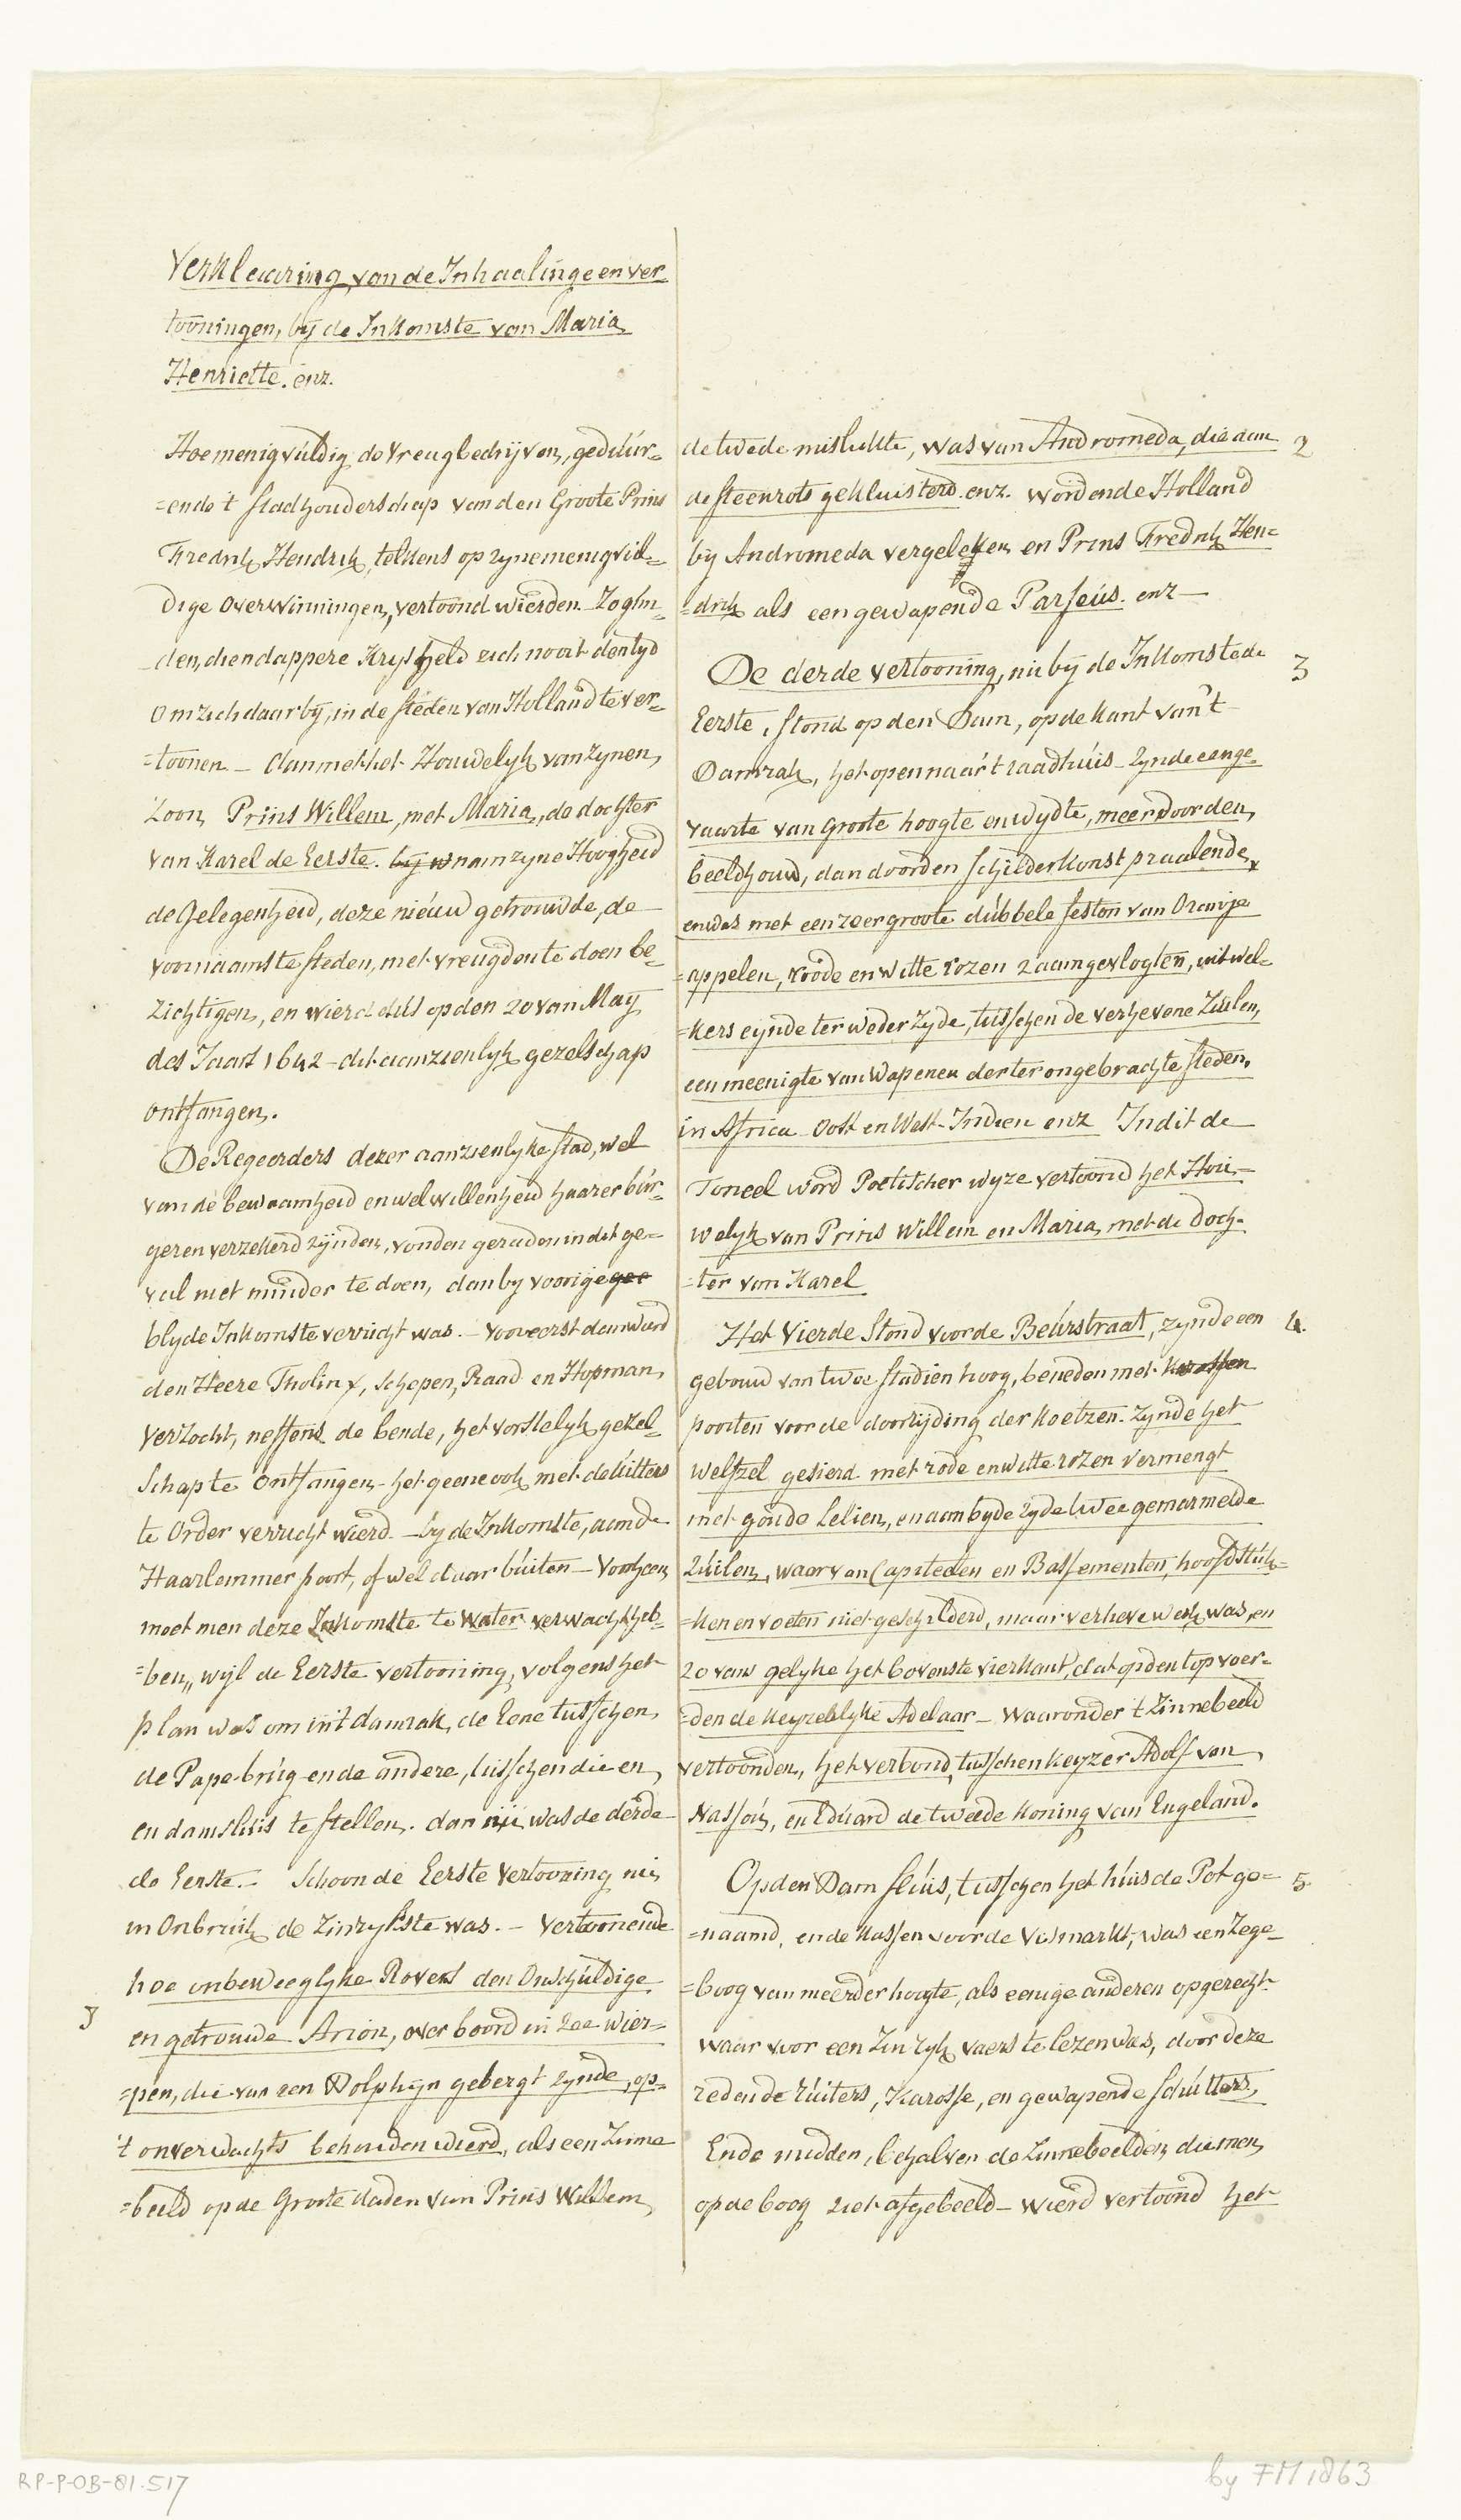 Verklaaring van de Inhaalinge en ver
tooningen, bij de Inkomste van Maria
Henriette. enz.
Hoe menigvúldig de Vreugbedrijven, gedúúr=
=ende 't Stadhouderschap van den Groote Prins
Fredrik Hendrik, telkens op zyne menigvúl=
dige Overwinningen, vertoond wierden.
den, dien dappere Krijsheld zich nooit den tyd
om zich daar by, in de steden van Holland te ver=
=toonen — dan met het Houwelyk van zynen,
Zoon, Prins Willem, met Maria, de dochter
van Karel de Eerste. nam zyne Hoogheid
de Gelegenheid, deze nieúw getrouwde, de
voornaamste steden, met vreugden te doen be=
zichtigen, en wierd dús op den 20 van Maÿ
des Jaars 1642 — dit aanzienlyk gezelschap
ontfangen.
De Regeerders dezer aanzienlyke stad, wel
van de bewaamheid en welwillenheid haarer búr=
geren verzekerd zijnden, vonden geraden in dit ge=
val niet minder te doen, dan by voorige gee
blyde Inkomste verricht was. — vooreerst dan werd
den Heere Tholinx, Schepen, Raad en Hopman,
verzocht, neffens de bende, het vorstelyk gezel=
schap te ontfangen — het geene ook met de rúitters
te Order verricht wierd — by de Inkomste, aan de
Haarlemmer poort, of wel daar búiten —
moet men deze Inkomste te water verwacht heb=
=ben, wijl de Eerste vertooning, volgens het
plan was om in 't damrak, de Eene tússchen,
de Pape-brúg en de andere, tússchen die en,
en damslúis te stellen. dan nú was de derde
de Eerste. — Schoon de Eerste vertooning nú,
in Onbrúik de Zinrykste was. — vertoonende
hoe onbeweeglyke Rovers den Onschúldige
en getrouwde Arion, over boord in Zee wier=
=pen, die van een Dolphijn gebergt zynde, op=
't onverwachts behouden wierd, als een Zinne
=beeld op de Groote daden van Prins Willem,
de twede mislukte, was van Andromeda, die aan 2
de steenrots gekluisterd. enz. wordende Holland
bij Andromeda vergeleken en Prins Fredrik Hen=
=drik als een gewapende Parseús. enz —
De derde vertooning, nu bij de Inkomste de 3
Eerste, stond op den Dam, op de kant van 't
Damrak, het open naar 't raadhúis — zynde een ge=
vaarte van Groote hoogte en wydte, meer door den,
beeldhouw, dan door den schilderkonst praalende,
en was met een zeer groote dúbbele feston van Oranje
=appelen, roode en witte rozen zaamgevlogten, uit wel=
=kers eynde ter weder zyde, tússchen de verhevene Zuilen,
een meenigte van Wapenen der ter ongebrachte steden,
in Africa Oost en West-Indien enz In dit de
Toneel word Poëtischer wyze vertoond het Hou=
welyk van Prins Willem en Maria, met de doch=
=ter van Karel
Het Vierde stond voor de Beúrstraat, zynde een 4.
gebouw van twee stadien hoog, beneden met
poorten voor de doorrijding der koetzen. zynde het
welfzel gesierd met rode en witte rozen vermengt
met goude Lelien, en aan byde zyde twee gemarmelde
Zúilen, waar van Capiteelen en Bassementen, hoofdstúk=
=ken en voeten niet geschilderd, maar verheve werk was, en
zo vans gelyke het bovenste vierkant, dat op den top voer=
=den de Keyzerlyke Adelaar — waar onder 't Zinnebeeld
vertoonden, het verbond, tusschen Keyzer Adolf van,
Nassoú, en Edúard de tweede Koning van Engeland.
Op den Dam slúis, tússchen het húis de Pot ge= 5.
=naamd, en de Kassen voor de Vismarkt, was een Zege
=boog van meerder hoogte, als eenige anderen opgerecht
waar voor een Zinryk vaers te lezen was, door deze
redende rúiters, Karosse, en gewapende schútters,
Ende midden, behalven de Zinnebeelden, die men,
op de boog ziet afgebeeld — wierd vertoond het
RP-P-OB-81.517
by FM 1863